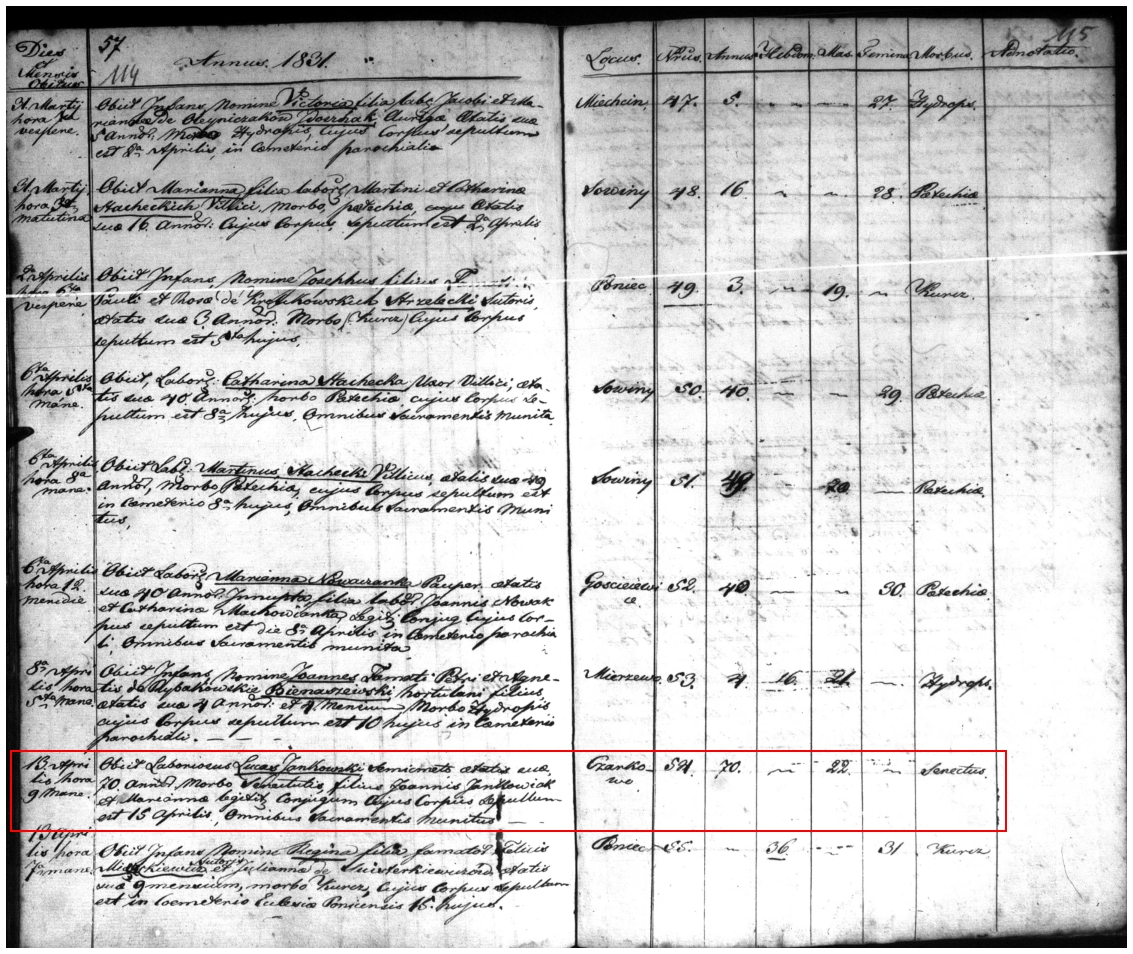 57
114
115
Dies et Mensis Obitus
Annus 1831.
Locus. Nrus. Annus Hebdom. Mas. Femina Morbus. Adnotatio.
31 Martij hora 7a vespere.
Obiit Infans, Nomine Victoria filia lab: Jacobi et Ma-
rianna de Oleyniczaków Dworzak Auriga Ætatis suæ
5 Annor: Morbo Hydropis, cujus Corpus sepultum
est 8a Aprilis, in Cœmeterio parochiali
Miechcin. 47. 5. ~ ~ 27. Hydrops.
31 Martij hora 3a matutina
Obiit Marianna filia labor: Martini et Catharina
Stacheckich Villici. Morbo petechiæ cujus Ætatis
suæ 16 Annor: Cujus Corpus sepultum est 2a Aprilis
Sowiny 48. 16 ~ ~ 28. Petechiæ
2a Aprilis hora 6ta vespere
Obiit Infans, Nomine Josephus filius
Pauli et Rosæ de Strzelecki Sutoris,
ætatis suæ 3 Annor: Morbo (Kurcz) Cujus Corpus
sepultum est 5ta hujus,
Poniec 49. 3. ~ 19. ~ Kurcz.
6ta Aprilis hora 5ta Mane.
Obiit, Labor: Catharina Stachecka Uxor Villici, æta-
tis suæ 40 Annor: morbo Petechiæ, cujus Corpus se-
pultum est 8a hujus, Omnibus Sacramentis Munita
Sowiny 50. 40. ~ ~ 29. Petechiæ
6ta Aprilis hora 8a mane.
Obiit Lab: Martinus Stachecki Villicus, ætatis suæ 49
Annor, Morbo Petechiæ, cujus Corpus sepultum est
in Cœmeterio 8a hujus, Omnibus Sacramentis Muni
tus,
Sowiny 51. 49. ~ 20. — Petechiæ,
6ta Aprilis hora 12 meridie
Obiit Labor: Marianna Nowaczanka Pauper. ætatis
suæ 40 Annor: Innupta, filia labor: Joannis Nowak
et Catharina Machowianka, Legit: Conjug: Cujus Cor-
pus sepultum est die 8a Aprilis in Cœmeterio parochia
li. Omnibus Sacramentis munita
Gościejewi ce. 52. 40. ~ ~ 30. Petechiæ.
8a Apri lis hora 5ta Mane.
Obiit Infans, Nomine Joannes Famati Petri et Agne-
tis de Rybakowskie Bienaszewski hortulani filius
ætatis suæ 4 Annor: et 4 Mensium Morbo Hydropis
cujus Corpus sepultum est 10 hujus in Cœmeterio
parochiali. — —
Mierzewo 53. 4 16. 21. ~ Hydrops.
13 Apri lis hora 9 Mane.
Obiit Laboriosus Lucas Jankowski Semicmeto ætatis suæ
70 Annor: Morbo Senectutis filius Joannis Jankowiak
et Mariannæ legitt: Conjugum Cujus Corpus sepultum
est 15 Aprilis, Omnibus Sacramentis Munitus —
Czarko- wo. 54. 70. ~ 22. ~ Senectus.
13 Apri lis hora 7a mane.
Obiit Infans Nomine Regina filia famator: Felicis
Sutoris
et Julianna de ætatis
suæ 9 mensium, morbo Kurcz, cujus Corpus sepultum
est in Cœmeterio Eclesiæ Ponicensis 15. hujus.
Poniec 55. ~ 36. ~ 31 Kurcz